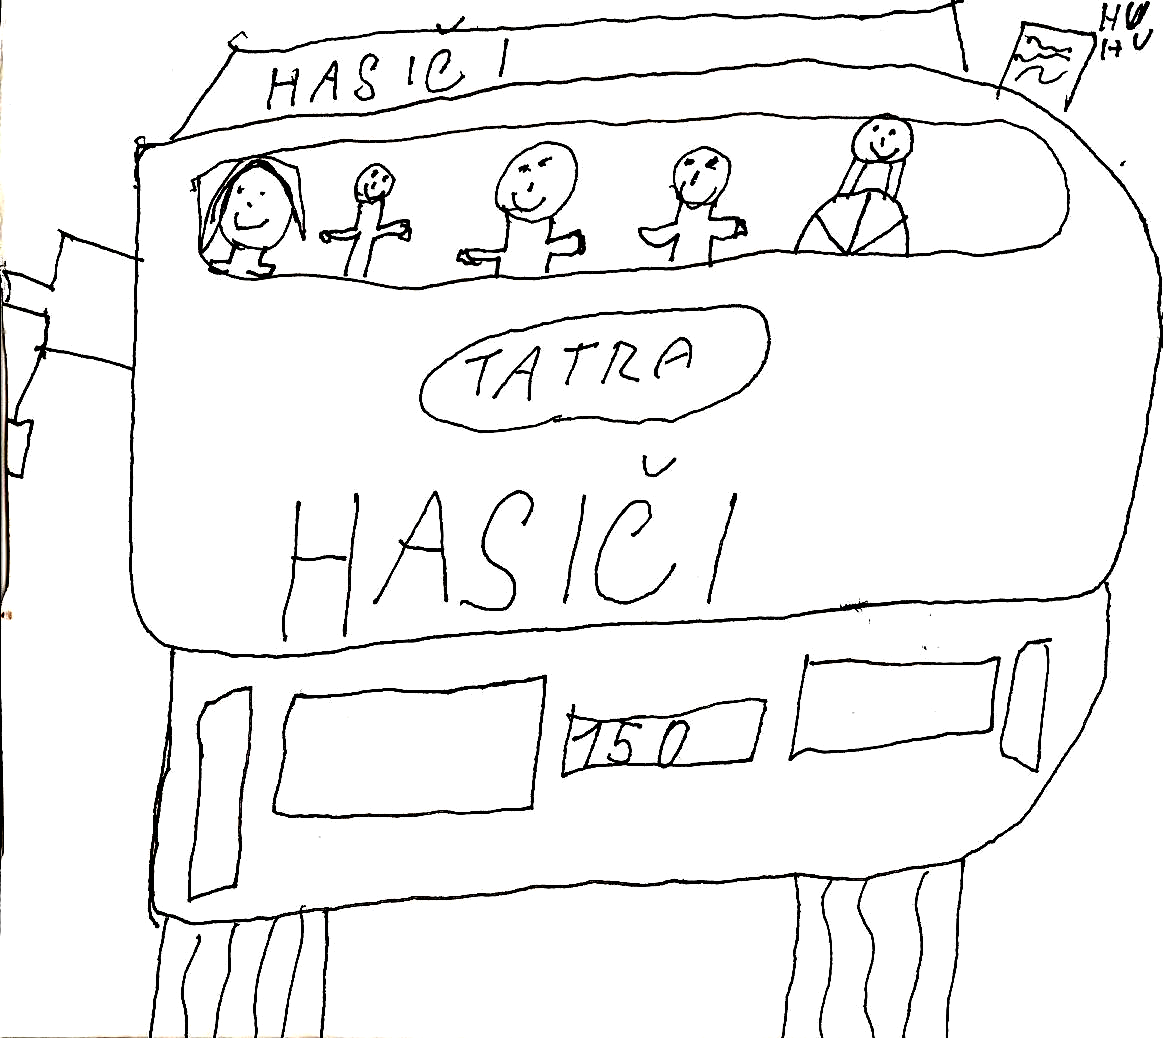 HASIČI
HÚ
HÚ
TATRA
HASIČI
150